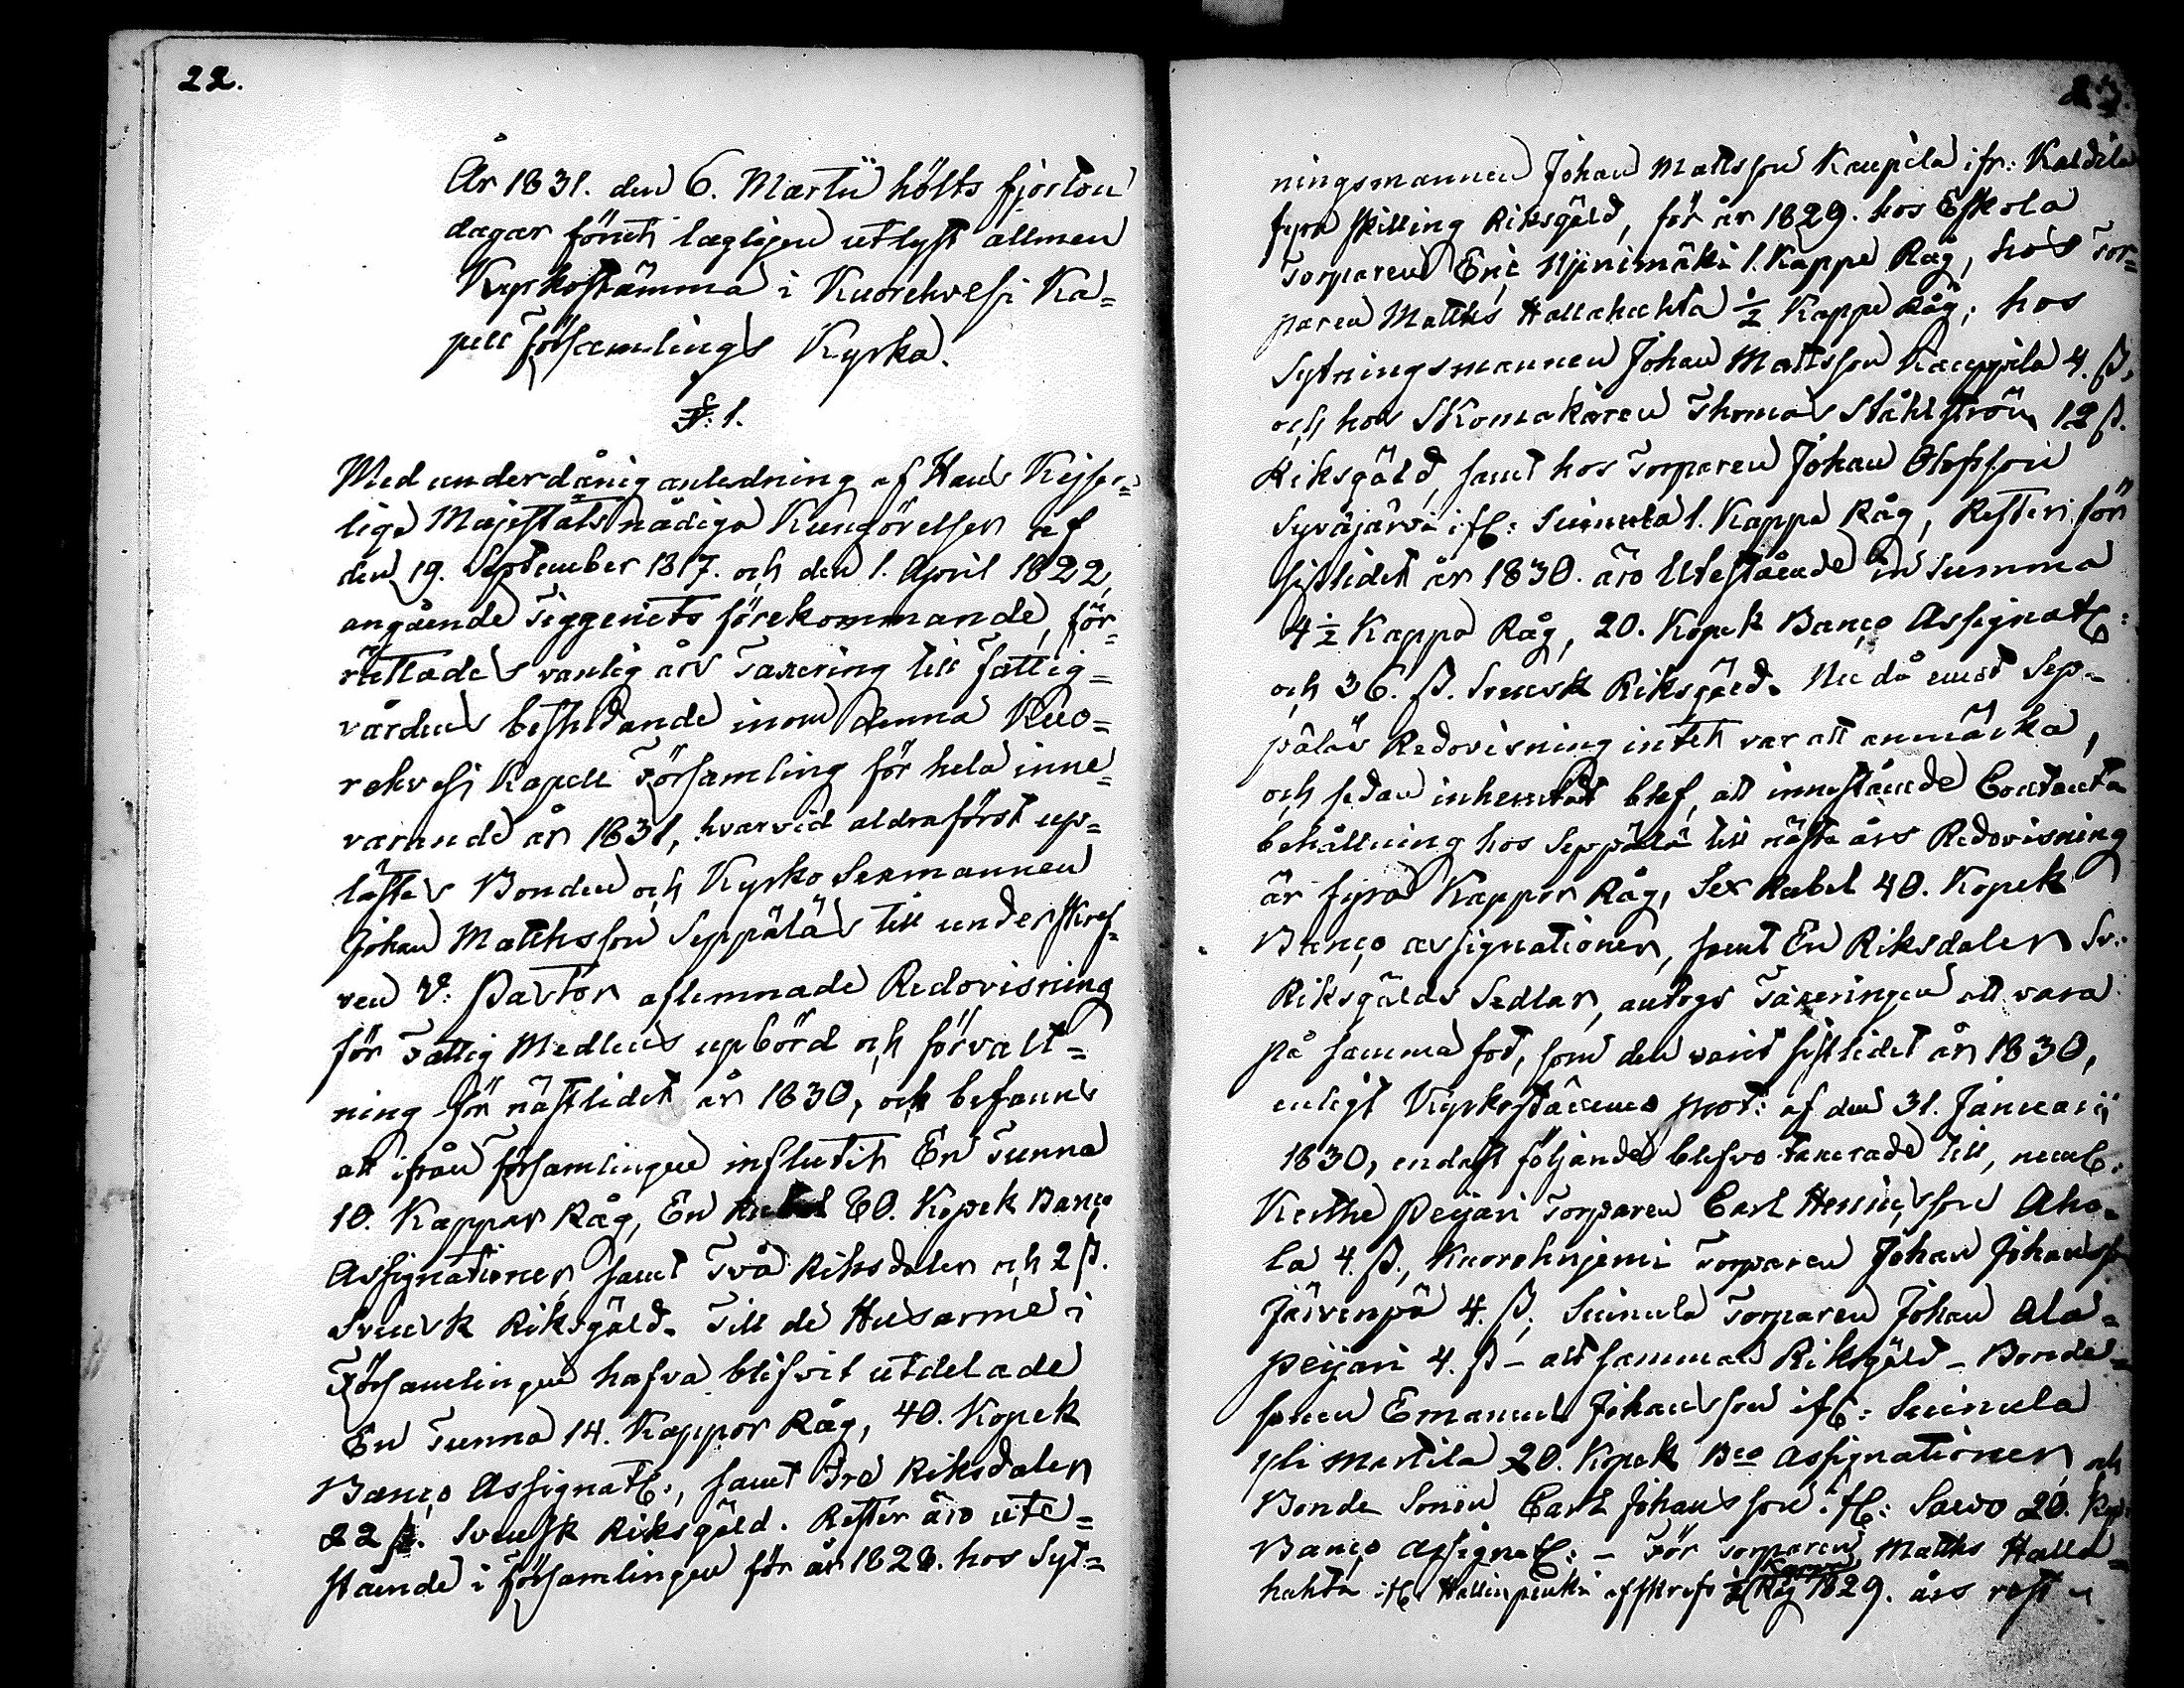 22.
År 1831. den 6. Martii hölts fjorton
dagar förut lagligen utlyst allmen
Kyrkostämma i Kuorehvesi Ka=
pell Församlings Kyrka.
§: 1.
Med underdånig anledning af Hans Kejser=
liga Majestäts nådiga Kungörelser af
den 19. September 1817. och den 1. April 1822,
angående Tiggeriets förekommande, för=
rättades vanlig års Taxering till Fattig=
vårdens bestridande inom denna Kuo=
rehvesi Kapell Församling för hela inne=
varande år 1831, hvarvid aldraförst up=
lästes Bonden och Kyrko Sexmannen
Johan Mathsson Seppäläs till underskref=
ven V: Pastor aflemnade Redovisning
för Fattig Medlens upbörd och förvalt=
ning för nästlidet år 1830, och befanns
att ifrån församlingen influtit En Tunna
10. Kappar Råg, En Rubel 60. Kopek Banco
Assignationer samt Två Riksdaler och 2 ß.
Svensk Riksgäld. Till de Husarme i
Församlingen hafva blifvit utdelade
En Tunna 14. Kappor Råg, 40. Kopek
Banco Assignat:, samt Tre Riksdaler
22 ß. Svensk Riksgäld. Rester äro ute=
stående i Församlingen för år 1828. hos Syt=
23.
ningsmannen Johan Mattsson Kaupila ifr: Kaldila
fyra skilling Riksgäld, för år 1829. hos Eskola
Torparen Eric Njinimäki 1. Kappe Råg, hos Tor=
paren Matths Hallahuhta ½ Kappe Råg, hos
Sytningsmannen Johan Mattsson Kauppila 4. ß,
och hos Skomakaren Thomas Ståhlström 12 ß.
Riksgäld, samt hos Torparen Johan Olofsson
Syväjärvi ifr: Suinula 1. Kappe Råg, Rester för
sistlidet år 1830. äro Utestående in Summa
4½ Kappa Råg, 20. Kopek Banco Assignat:
och 36. ß. Svensk Riksgäld. Nu då emot Sep=
päläs Redovisning intet var att anmärka,
och sedan inhemtat blef, att innestående Contanta
behållning hos Seppälä till nästa års Redovisning
är fyra Kappor Råg, Sex Rubel 40. Kopek
Banco assignationer, samt En Riksdaler Sv:
Riksgälds Sedlar, antogs Taxeringen att vara
på samma fot, som den varit sistlidet år 1830,
enligt Kyrkostämmo prot: af den 31. Januarii
1830, endast följande blefvo taxerade till, neml:
Kerthe Peijari Torparen Carl Henricsson Aho=
la 4. ß., Kuorehnjemi Torparen Johan Johansss
Järvenpä 4. ß, Suinula Torparen Johan Ala=
peijari 4. ß – allt samman Riksgäld – Bonde=
sonen Emanuel Johansson ifr: Suinula
Yli Martila 20. Kopek Bco Assignationer, och
Bonde Sonen Carl Johansson ifr: Sarvo 20. Kop:
Banco assignat: – För Torparen Matths Halla=
huhta ifr: Hallinpenki afskrefs ½ Kappe Råg 1829. års rest –